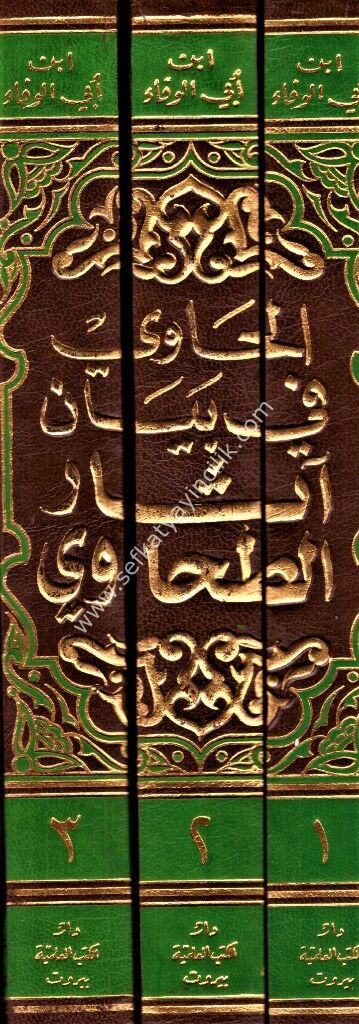 ابن
أبي الوفاء
ابن
أبي الوفاء
ابن
أبي الوفاء
الحاوي
في بيان
آثار
الطحاوي
١
٢
٣
دار
الكتب العلمية
بيروت
دار
الكتب العلمية
بيروت
دار
الكتب العلمية
بيروت
www.sefkatyayincilik.com